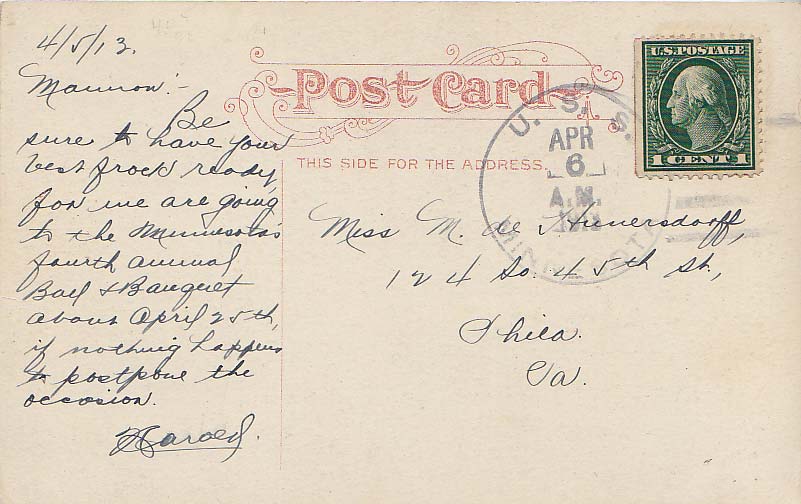 4/5/13.
Mannow:-
Be
sure to have your
best frock ready,
for we are going
to the Minnesota's
fourth annual
Ball & Banquet
about April 25th,
if nothing happens
to postpone the
occasion.
Harold.
Post Card
THIS SIDE FOR THE ADDRESS.
U.S. POSTAGE
1 CENT 1
U. S. S.
APR
6
A.M.
1913
MINNESOTA
Miss M. de
124 So. 45th St.,
Phila.
Pa.